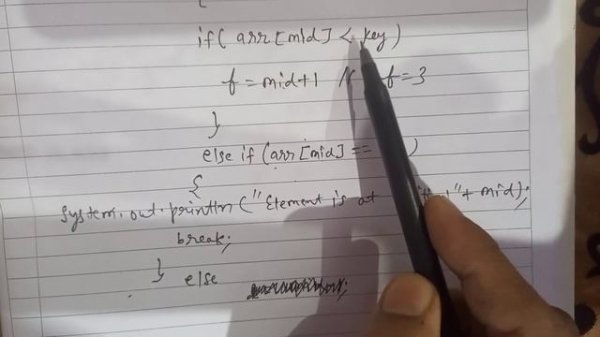 {
if( arr[mid] < key)
f = mid+1 // f=3
}
else if (arr[mid] == )
{
System.out.println("Element is at "+ mid);
break;
} else